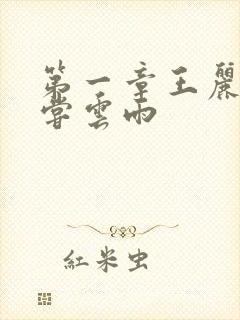 第一章王麗
嘗雲雨
紅米虫